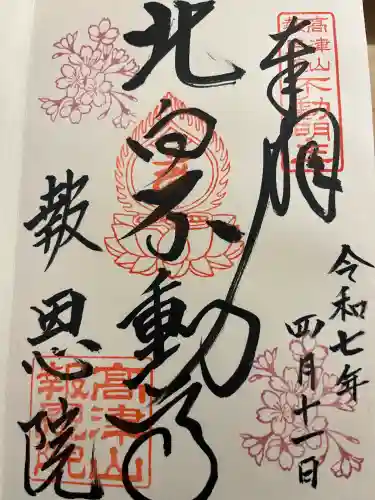 奉拝
高津山
報恩院
不動明王
令和七年
四月十一日
北向不動尊
報恩院
高津山
報恩院